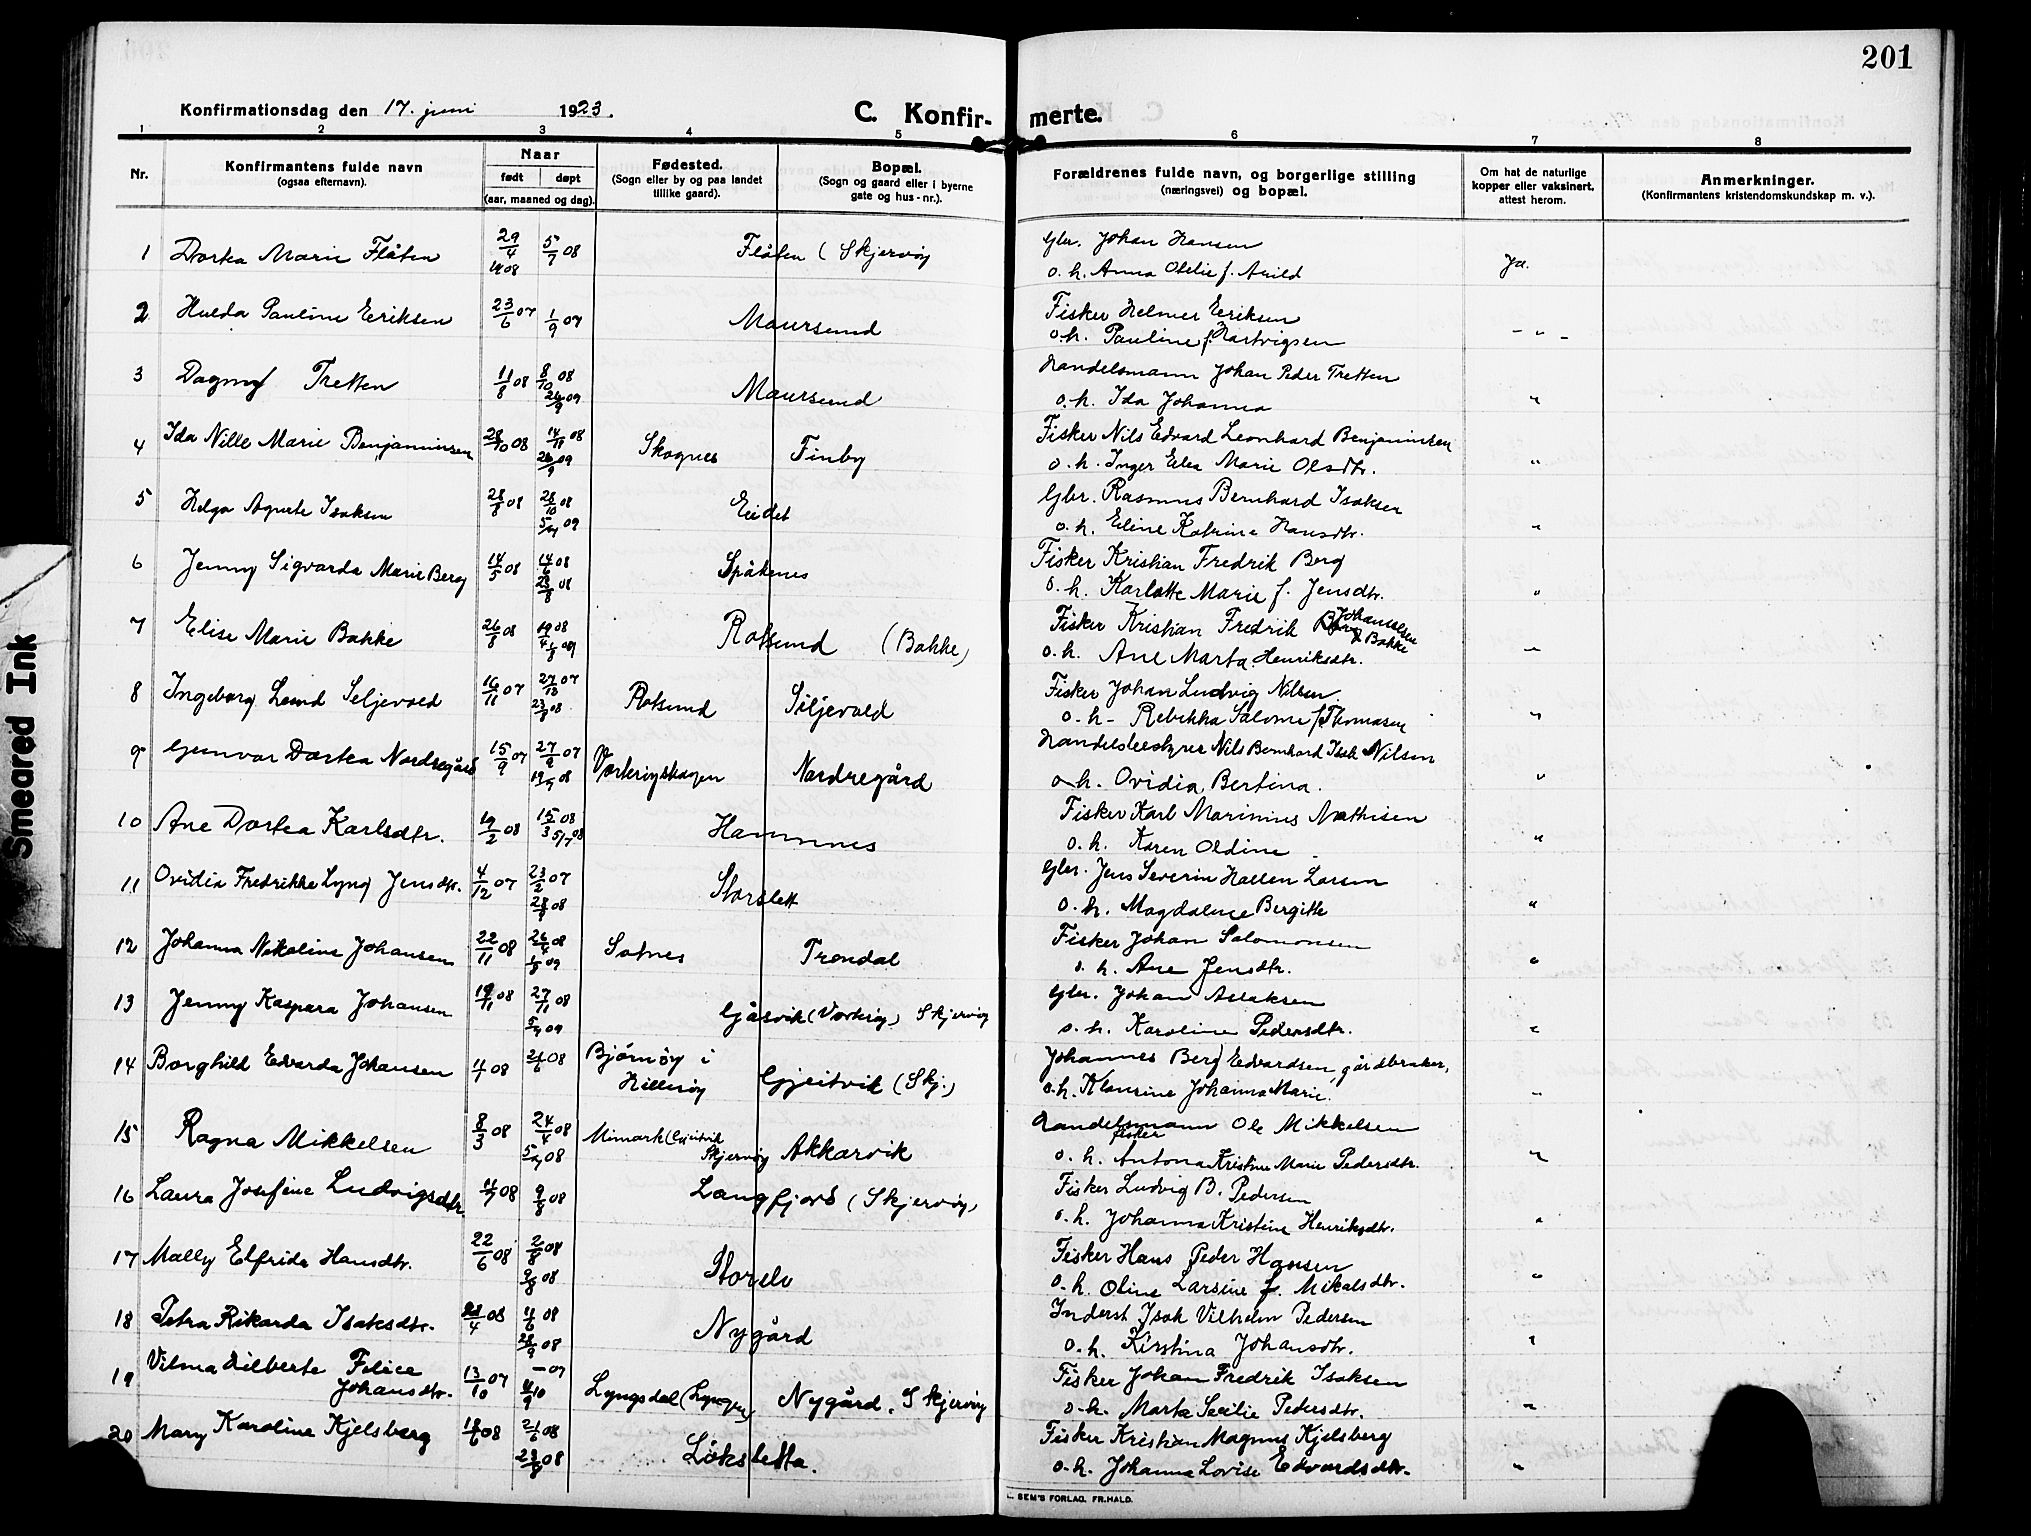 201
Konfirmationsdag den 17. juni 1923.
C. Konfir- merte.
1 2 3 4 5 6 7 8
Nr.
Konfirmantens fulde navn
(ogsaa efternavn).
Naar
født døpt
(aar, maaned og dag).
Fødested.
(Sogn eller by og paa landet
tillike gaard).
Bopæl.
(Sogn og gaard eller i byerne
gate og hus-nr.).
Forældrenes fulde navn, og borgerlige stilling
(næringsvei) og bopæl.
Om hat de naturlige
kopper eller vaksinert,
attest herom.
Anmerkninger.
(Konfirmantens kristendomskundskap m. v.).
1 Dortea Marie Flåten 29/4 1908 5/7 08 Flåten (Skjervøy Gbr. Johan Hansen
o. h. Anna Otelie f. Arild Ja.
2 Hulda Pauline Eriksen 23/6 07 1/9 07 Maursund Fisker Helmer Eriksen
o. h. Pauline f. Hartvigsen - " -
3 Dagny Tretten 11/8 08 8/10 08 Maursund Handelsmann Johan Peder Tretten
26/9 09 o. h. Ida Johanna "
4 Ida Nille Marie Benjaminsen 28/10 08 14/11 08 Skognes Finby Fisker Nils Edvard Leonhard Benjaminsen
26/9 09 o. h. Inger Elea Marie Olsdtr. "
5 Helga Agnete Isaksen 28/8 08 28/10 08 Eidet Gbr. Rasmus Bernhard Isaksen
09 o. h. Eline Katrine Hansdtr. "
6 Jenny Sigvarda Marie Berg 14/5 08 14/6 08 Spåkenes Fisker Kristian Fredrik Berg
23/8 08 o. h. Karlotte Marie f. Jensdtr. "
7 Elise Marie Bakke 26/8 08 08 Rotsund (Bakke) Fisker Kristian Fredrik Johannesen
Bakke
o. h. Ane Marta Henriksdtr. "
8 Ingeborg Lund Seljevold 16/11 07 27/12 07 Rotsund Siljevold Fisker Johan Ludvig Nilsen
23/8 08 o. h. Rebekka Salome f. Thomasen "
9 Gunvor Dortea Nordregård 15/9 07 27/9 07 Vorterøyskagen Nordregård Handelsbestyrer Nils Bernhard Isak Nilsen
08 o. h. Ovidia Bertina. "
10 Ane Dortea Karlsdtr. 19/2 08 15/3 08 5/7 08 Hamnnes Fisker Karl Marinius Mathisen
o. h. Karen Oldine "
11 Ovidia Fredrikke Lyng Jensdtr. 4/12 07 23/2 07 Storslett Gbr. Jens Severin Hallen Larsen
08 o. h. Magdalene Bergitte "
12 Johanna Nikoline Johansen 22/11 08 26/4 08 Sotnes Trondal Fisker Johan Salomonsen
1/8 09 o. h. Ane Jensdtr. "
13 Jenny Kaspara Johansen 19/11 08 27/11 08 Gåsvik (Vorterøy) Skjervøy Gbr. Johan Aslaksen
09 o. h. Karoline Pedersdtr. "
14 Borghild Edvarda Johansen 08 21/6 08 Bjørnøy i Gjeitvik (Skj.) Johannes Berg Edvardsen gårdbruker,
Hillesøy o. h. Klausine Johanna Marie. "
15 Ragna Mikkelsen 8/3 08 24/4 08 Mimark (Gjeitvik Akkarvik Handelsmann Ole Mikkelsen
fisker
08 Skjervøy o. h. Antona Kristine Marie Pedersdtr. "
16 Laura Josefine Ludvigsdtr. 08 9/8 08 Langfjord (Skjervøy) Fisker Ludvig B. Pedersen
o. h. Johanna Kristine Henriksdtr. "
17 Mally Elfrida Hansdtr. 22/6 08 2/8 08 Storelv Fisker Hans Peder Hansen
08 o. h. Oline Larsine f. Mikalsdtr. "
18 Petra Rikarda Isaksdtr. 08 08 Nygård Inderst Isak Vilhelm Pedersen
28/9 08 o. h. Kirstina Johansdtr. "
19 Vilma Hilberte Felice 13/10 07 - 07 Lyngsdal (Lyngen) Nygård. Skjervøy Fisker Johan Fredrik Isaksen
Johansdtr. o. h. Marta Secilie Pedersdtr. "
20 Mary Karoline Kjelsberg 08 21/6 08 Løksletta. Fisker Kristian Magnus Kjelsberg
23/8 08 o. h. Johanna Lovise Edvardsdtr. "
SEM'S FORLAG, FR.HALD.
Smeared Ink